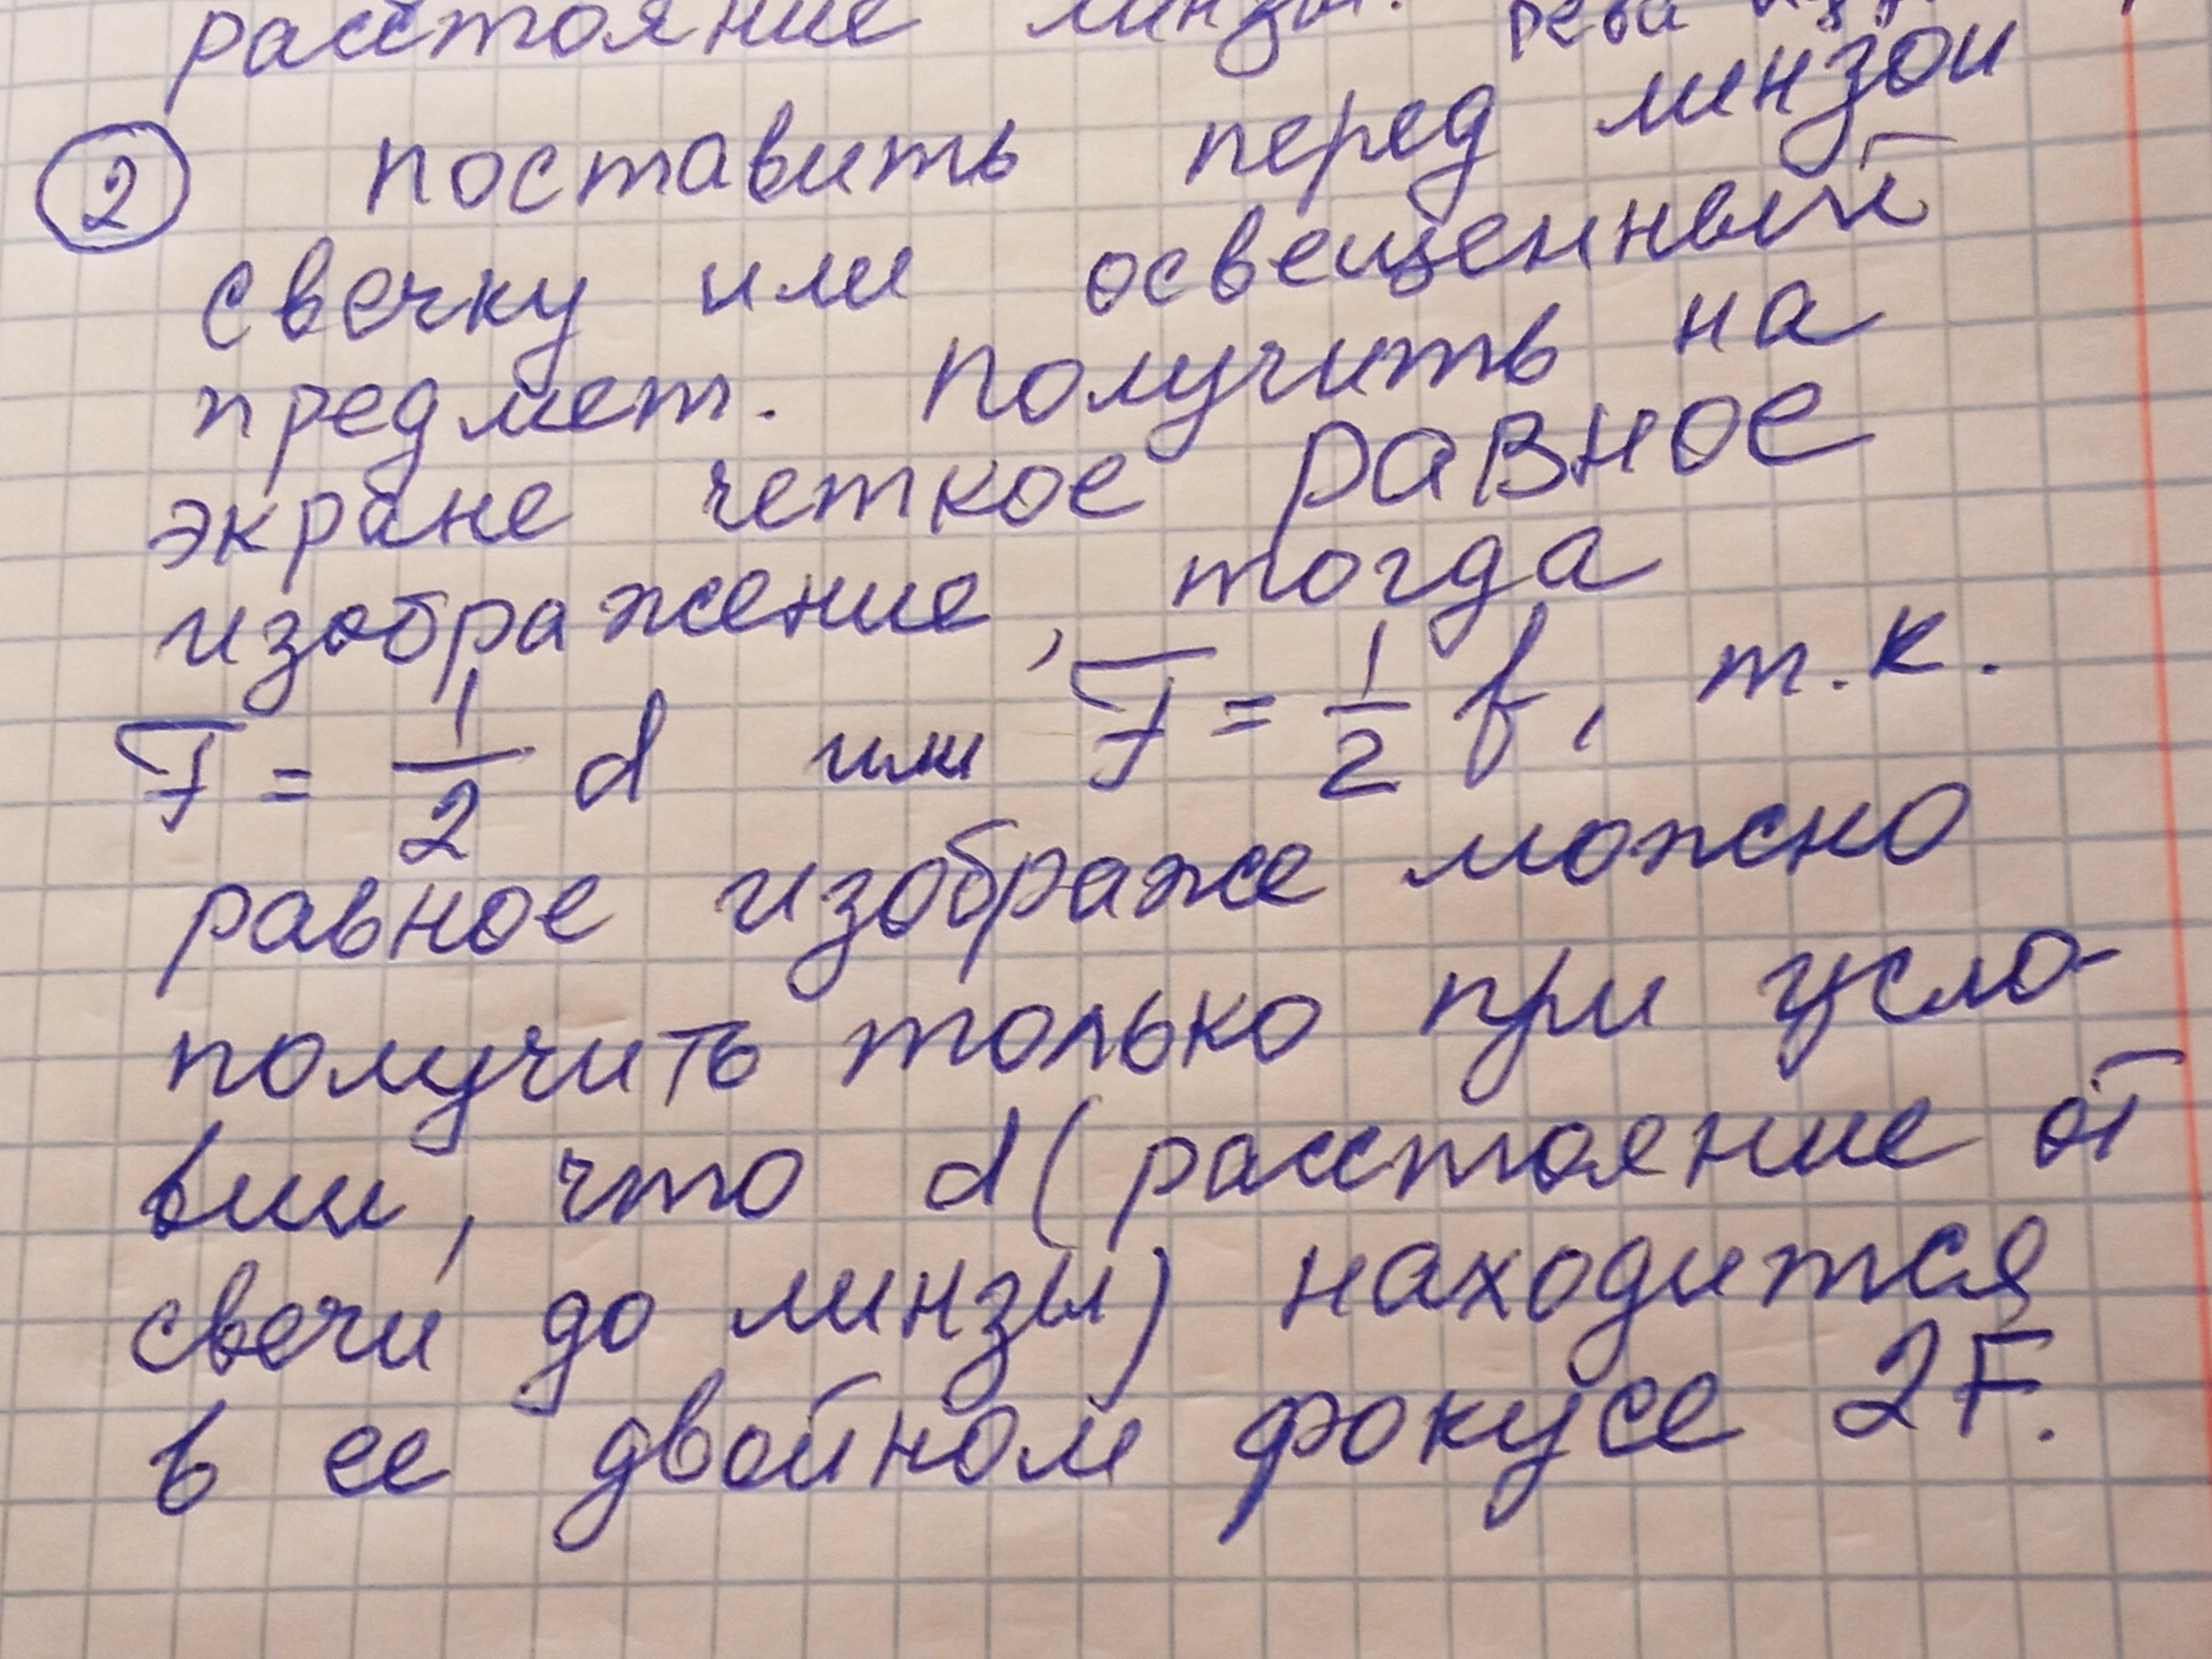 расстояние линзы.
② поставить перед линзой
свечку или освещенный
предмет. Получить на
экране четкое равное
изображение, тогда
F = 1/2 d или F = 1/2 f, т.к.
равное изображе можно
получить только при усло-
вии, что d (расстояние от
свечи до линзы) находится
в ее двойном фокусе 2F.